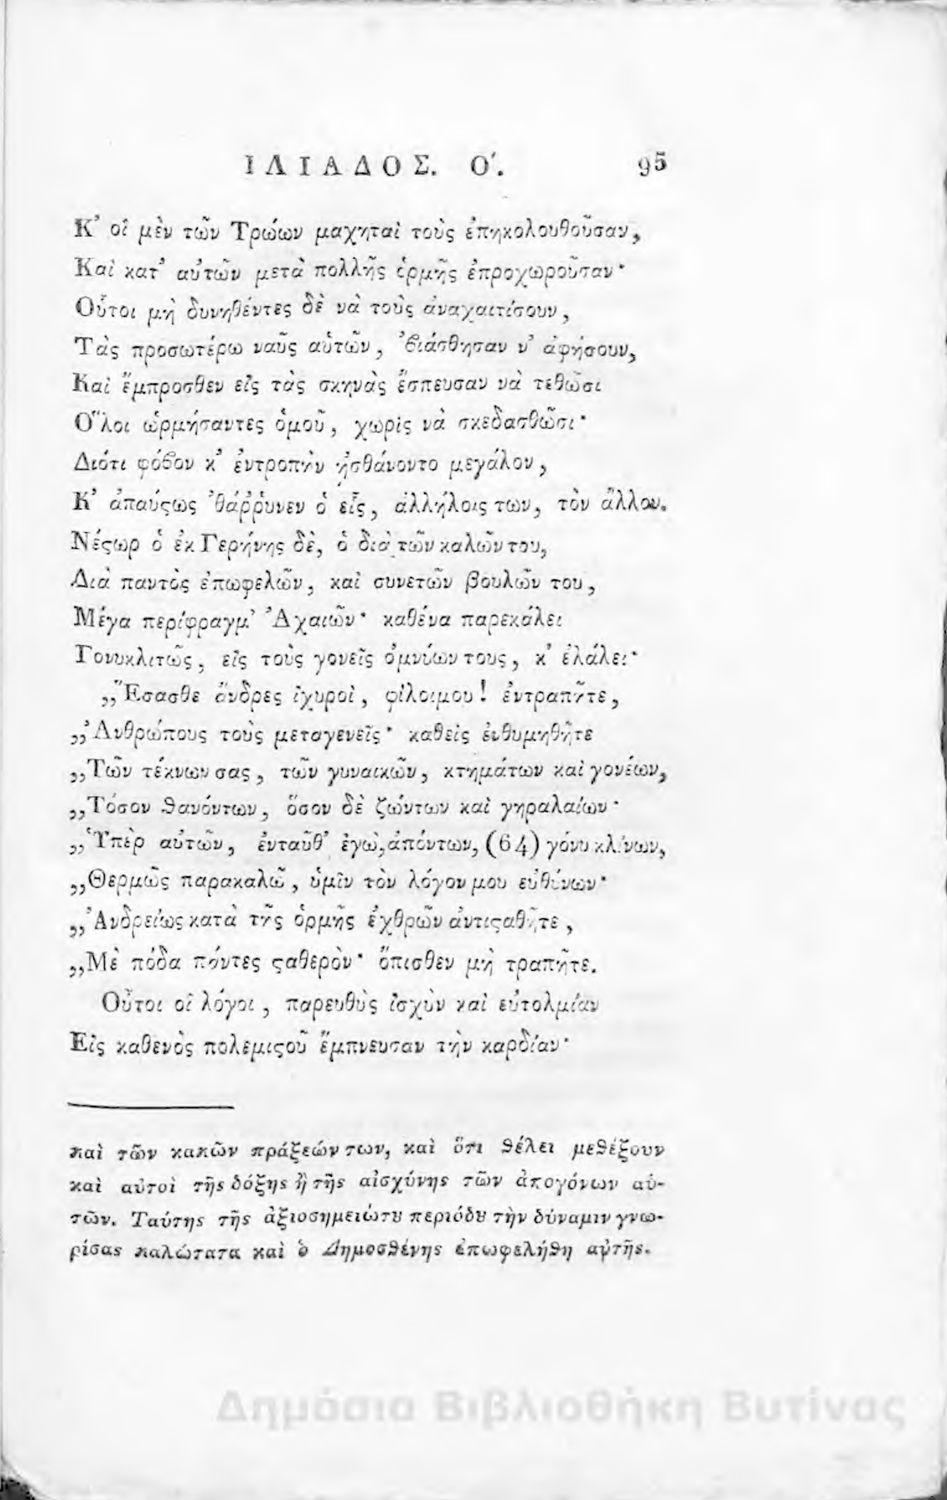 ΙΛΙΑΔΟΣ. Ο'. 95
Κ' οἱ μὲν τῶν Τρώων μαχηταὶ τοὺς ἐπηκολουθοῦσαν,
Καὶ κατ' αὐτῶν μετὰ πολλῆς ὁρμῆς ἐπροχωροῦσαν·
Οὗτοι μὴ δυνηθέντες δὲ νὰ τοὺς ἀναχαιτίσουν,
Τὰς προσωτέρω ναῦς αὑτῶν, 'ϐιάσθησαν ν' ἀφήσουν,
Καὶ ἔμπροσθεν εἰς τὰς σκηνὰς ἔσπευσαν νὰ τεθῶσι
Ὅλοι ὡρμήσαντες ὁμοῦ, χωρὶς νὰ σκεδασθῶσι·
Διότι φόϐον κ' ἐντροπὴν ᾐσθάνοντο μεγάλον,
Κ' ἀπαύϛως 'θάῤῥυνεν ὁ εἷς, ἀλλήλοις των, τὸν ἄλλον.
Νέϛωρ ὁ ἐκ Γερήνης δὲ, ὁ διὰ τῶν καλῶν του,
Διὰ παντὸς ἐπωφελῶν, καὶ συνετῶν βουλῶν του,
Μέγα περίφραγμ' Ἀχαιῶν· καθένα παρεκάλει
Γονυκλιτῶς, εἰς τοὺς γονεῖς ὀμνύων τους, κ' ἐλάλει·
„Ἔσασθε ἄνδρες ἰχυροὶ, φίλοι μου! ἐντραπῆτε,
„Ἀνθρώπους τοὺς μεταγενεῖς· καθεὶς ἐνθυμηθῆτε
„Τῶν τέκνων σας, τῶν γυναικῶν, κτημάτων καὶ γονέων,
„Τόσον ϑανόντων, ὅσον δὲ ζώντων καὶ γηραλαίων·
„Ὑπὲρ αὐτῶν, ἐνταῦθ' ἐγὼ, ἀπόντων, (64) γόνυ κλίνων,
„Θερμῶς παρακαλῶ, ὑμῖν τὸν λόγον μου εὐθύνων·
„Ἀνδρείως κατὰ τῆς ὁρμῆς ἐχθρῶν ἀντιϛαθῆτε,
„Μὲ πόδα πάντες ϛαθερὸν· ὄπισθεν μὴ τραπῆτε.
Οὗτοι οἱ λόγοι, παρευθὺς ἰσχὺν καὶ εὐτολμίαν
Εἰς καθενὸς πολεμιϛοῦ ἔμπνευσαν τὴν καρδίαν·
καὶ τῶν κακῶν πράξεών των, καὶ ὅτι ϑέλει μεϑέξουν
καὶ αὐτοὶ τῆς δόξης ἢ τῆς αἰσχύνης τῶν ἀπογόνων αὑ-
τῶν. Ταύτης τῆς ἀξιοσημειώτȣ περιόδȣ τὴν δύναμιν γνω-
ρίσας καλώτατα καὶ ὁ Δημοσϑένης ἐπωφελήϑη αὐτῆς.
Δημόσια Βιβλιοθήκη Βυτίνας